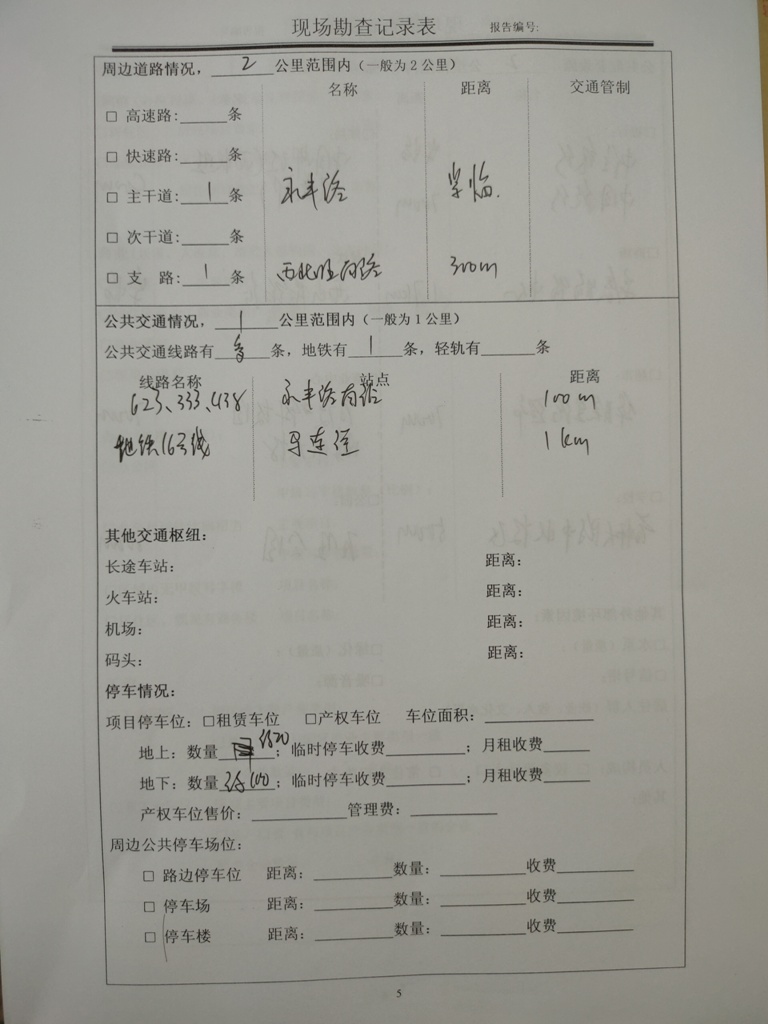 现场勘查记录表 报告编号:
周边道路情况，2公里范围内（一般为2公里）
名称 距离 交通管制
□ 高速路:______条
□ 快速路:______条
□ 主干道:1条 永丰路 紧临
□ 次干道:______条
□ 支 路:1条 西北旺南路 300m
公共交通情况，1公里范围内（一般为1公里）
公共交通线路有______条，地铁有1条，轻轨有______条
线路名称 站点 距离
623、333、438 永丰路南站 100m
地铁16号线 马连洼 1km
其他交通枢纽:
长途车站: 距离:
火车站: 距离:
机场: 距离:
码头: 距离:
停车情况:
项目停车位: □租赁车位 □产权车位 车位面积:____________
地上: 数量______; 临时停车收费________; 月租收费_____
地下: 数量______; 临时停车收费________; 月租收费_____
产权车位售价: __________管理费: _________
周边公共停车场位:
□ 路边停车位 距离: ________数量: ________收费________
□ 停车场 距离: ________数量: ________收费________
□ 停车楼 距离: ________数量: ________收费________
5